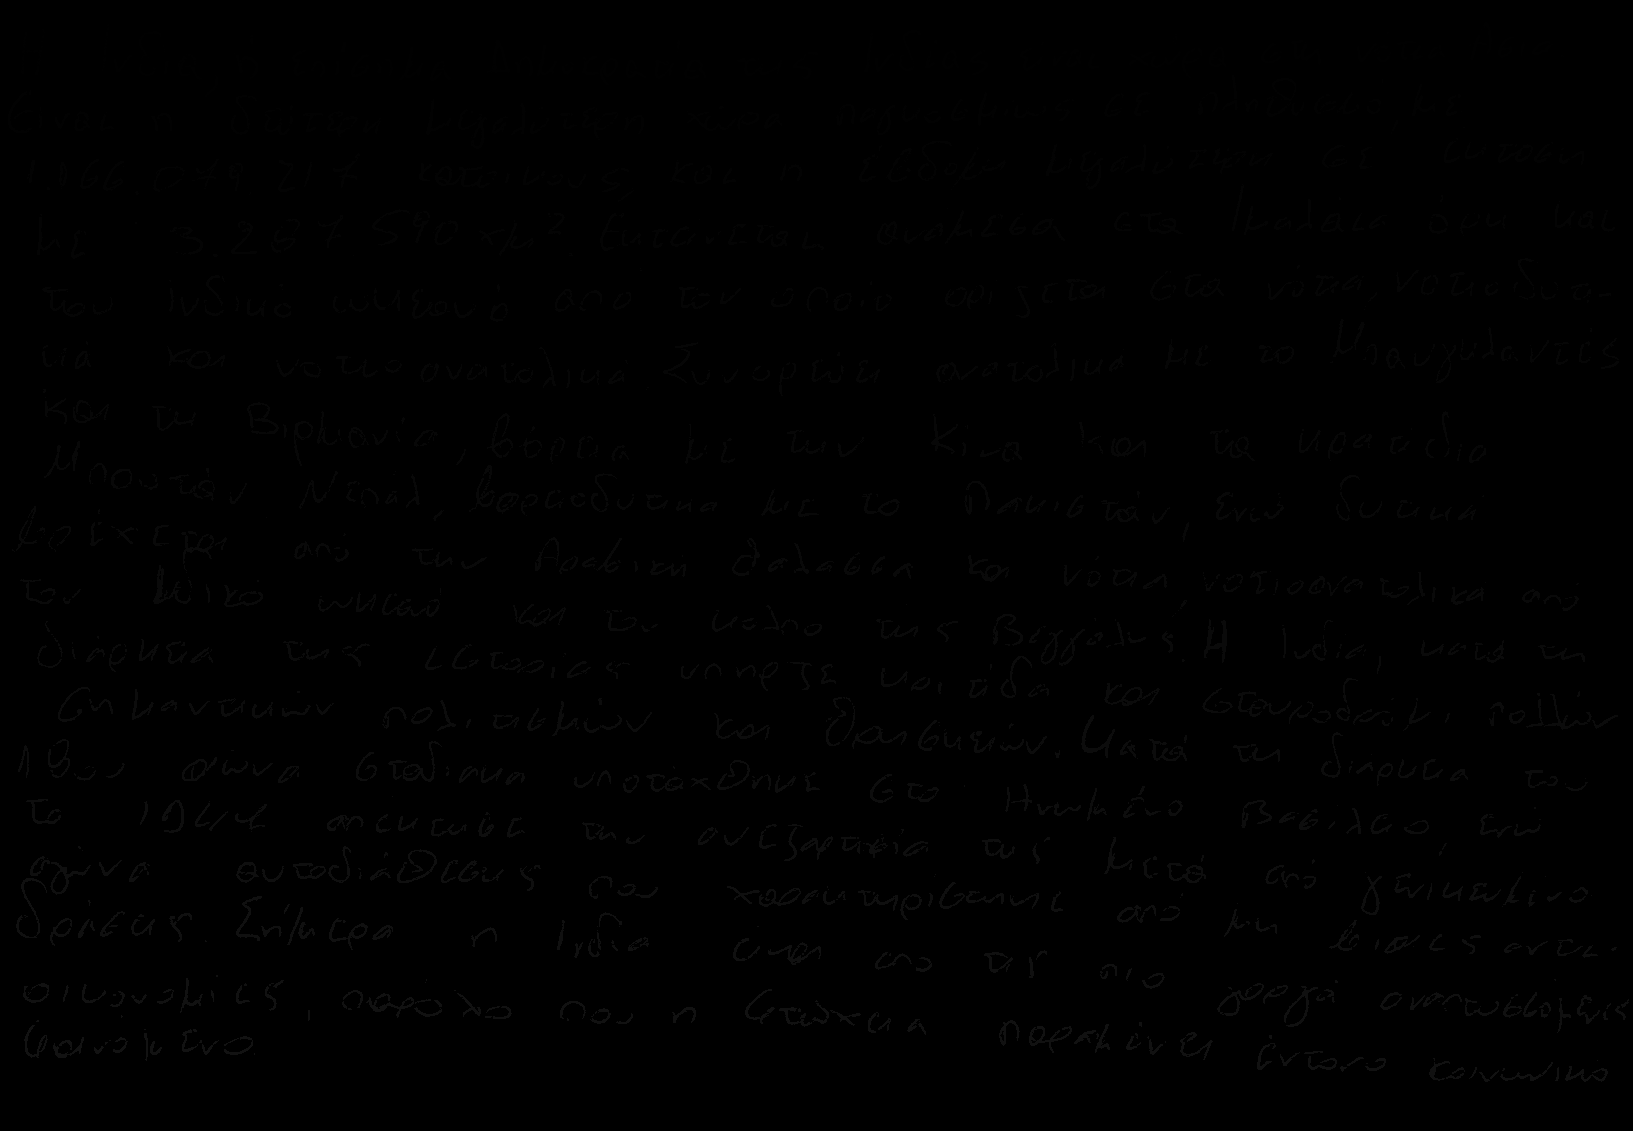 Είναι η δεύτερη μεγαλύτερη χώρα παγκοσμίως σε πληθυσμό, με
κατοίκους, και η έβδομη μεγαλύτερη σε έκταση
με 3.287.590 χμ². Εκτείνεται ανάμεσα στα Ιμαλάια όρη και
τον Ινδικό ωκεανό από τον οποίο ορίζεται στα νότια, νοτιοδυτι-
κά και νοτιοανατολικά Συνορεύει ανατολικά με το Μπανγκλαντές
και τη Βιρμανία, βόρεια με την Κίνα και τα κρατίδια
Μπουτάν Νεπάλ, βορειοδυτικά με το Πακιστάν, ενώ δυτικα
βρέχεται από την Αραβικη θαλασσα και νότια, νοτιοανατολικα από
τον Ινδικό ωκεανό και τον κολπο της Βεγγάλης. Η Ινδία, κατά τη
διάρκεια της ιστορίας υπηρξε κοιτίδα και σταυροδρόμι πολλών
σημαντικών πολιτισμών και θρησκειών. Κατά τη διαρκεια του
19ου αιώνα σταδιακα υποτάχθηκε στο Ηνωμένο Βασιλειο, ενώ
το 1947 απεκτησε την ανεξαρτησία της μετά από γενικευμένο
αγώνα αυτοδιάθεσης που χαρακτηρίστηκε από μη βιαιες αντι-
δράσεις. Σήμερα η Ινδία είναι απο τις πιο γοργά αναπτυσσόμενες
οικονομίες, παρόλο που η φτώχεια παραμένει έντονο κοινωνικο
φαινόμενο